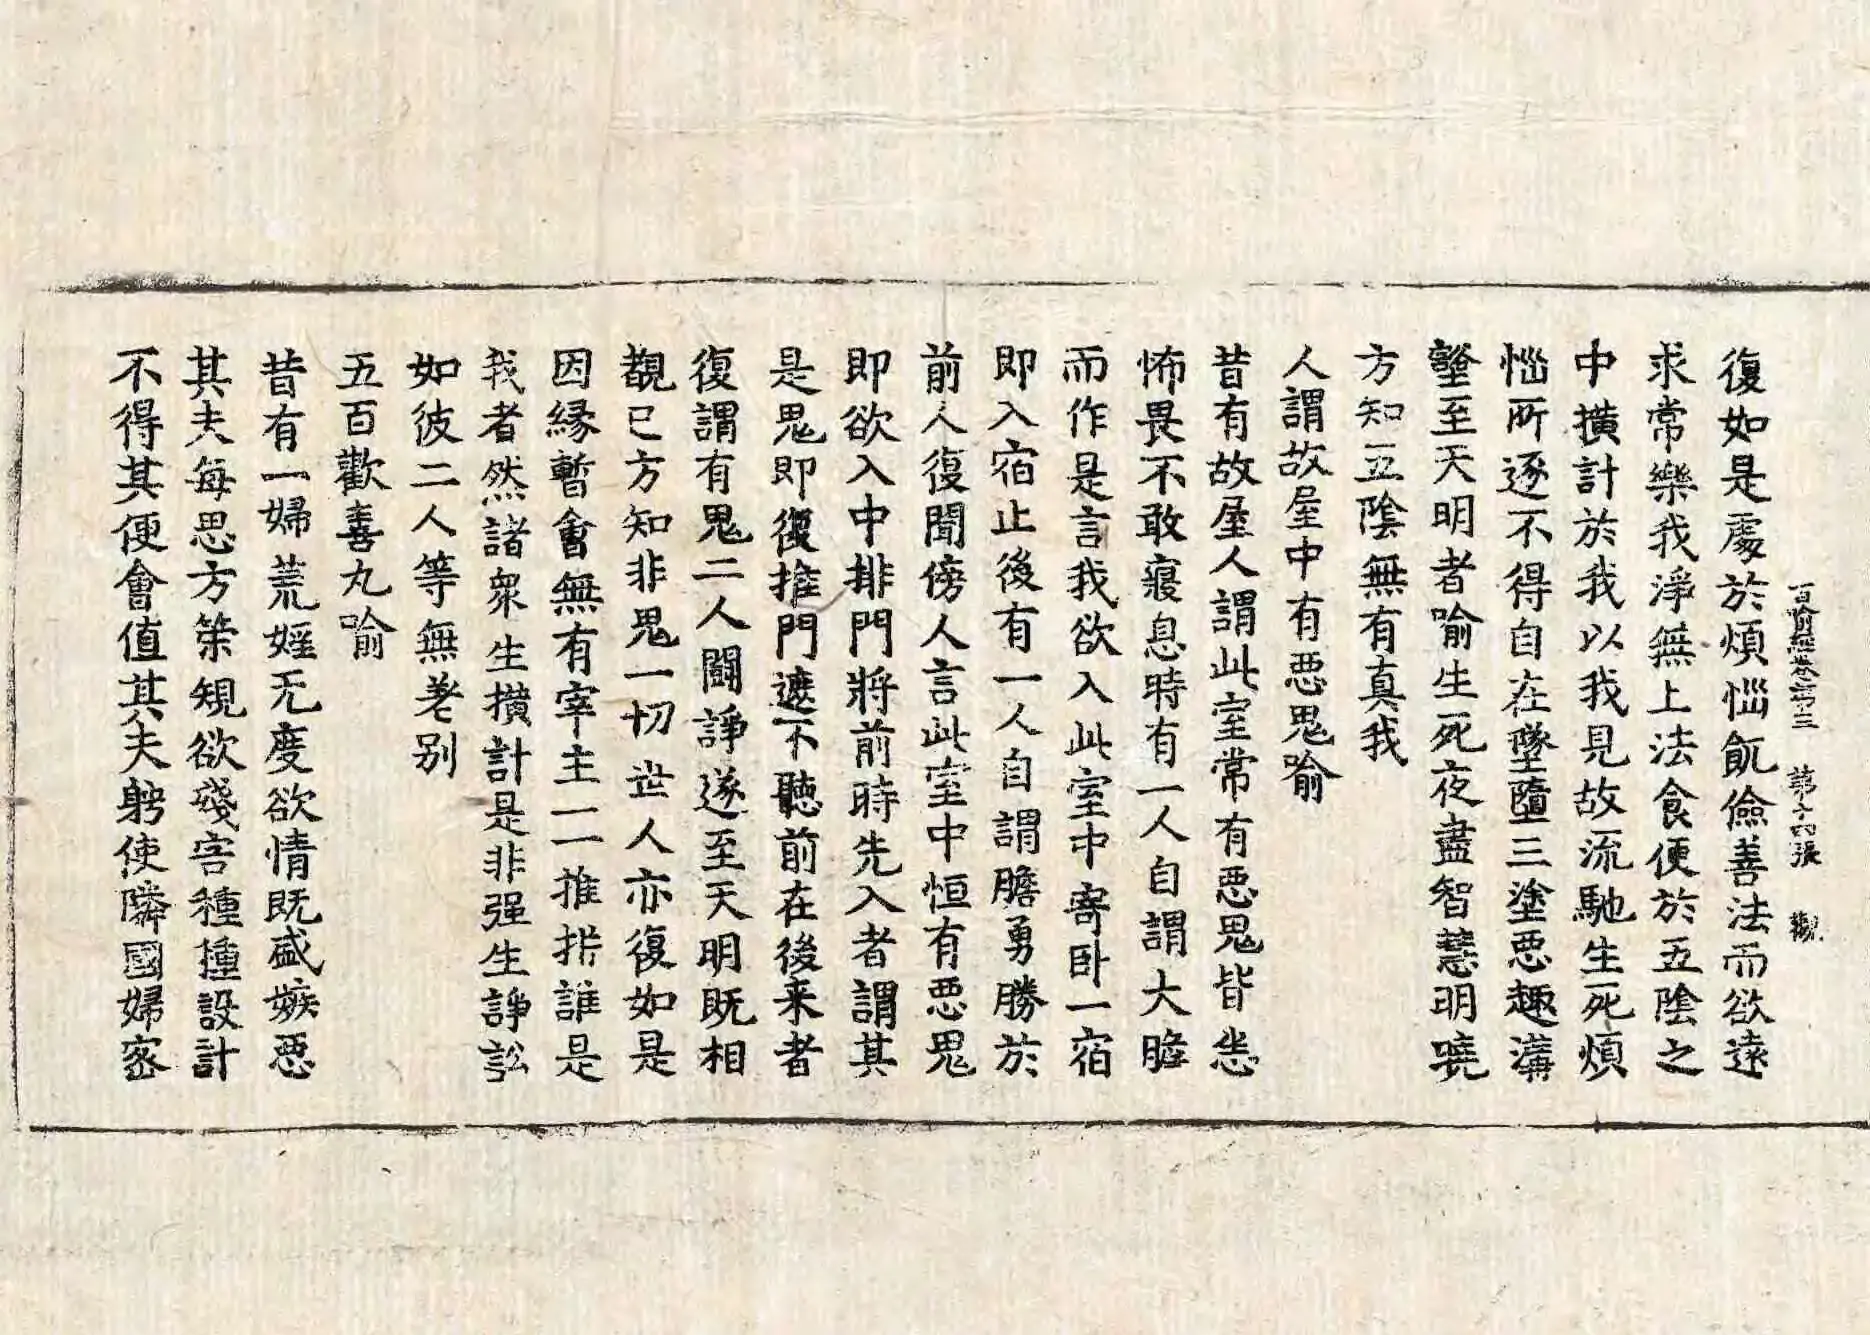 百喻經卷第三 第十四張 觀
復如是處於煩惱飢儉善法而欲遠
求常樂我淨無上法食便於五陰之
中撗計於我以我見故流馳生死煩
惱所逐不得自在墜墮三塗惡趣溝
壑至天明者喻生死夜盡智慧明曉
方知五陰無有真我
人謂故屋中有惡鬼喻
昔有故屋人謂此室常有惡鬼皆悉
怖畏不敢寢息時有一人自謂大膽
而作是言我欲入此室中寄臥一宿
即入宿止後有一人自謂膽勇勝於
前人復聞傍人言此室中恒有惡鬼
即欲入中排門將前時先入者謂其
是鬼即復推門遮不聽前在後来者
復謂有鬼二人鬪諍遂至天明既相
覩已方知非鬼一切世人亦復如是
因緣暫會無有宰主一一推析誰是
我者然諸衆生撗計是非强生諍訟
如彼二人等無差別
五百歡喜丸喻
昔有一婦荒婬无度欲情既盛嫉惡
其夫每思方策規欲殘害種種設計
不得其便會值其夫躬使隣國婦密